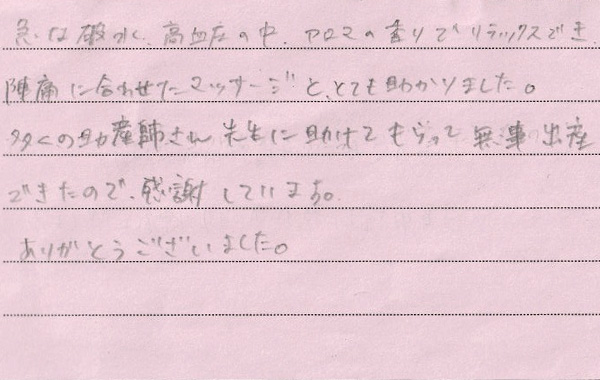 急な破水、高血圧の中、アロマの香りでリラックスでき、
陣痛に合わせたマッサージと、とても助かりました。
多くの助産師さん先生に助けてもらって無事出産
できたので、感謝しています。
ありがとうございました。